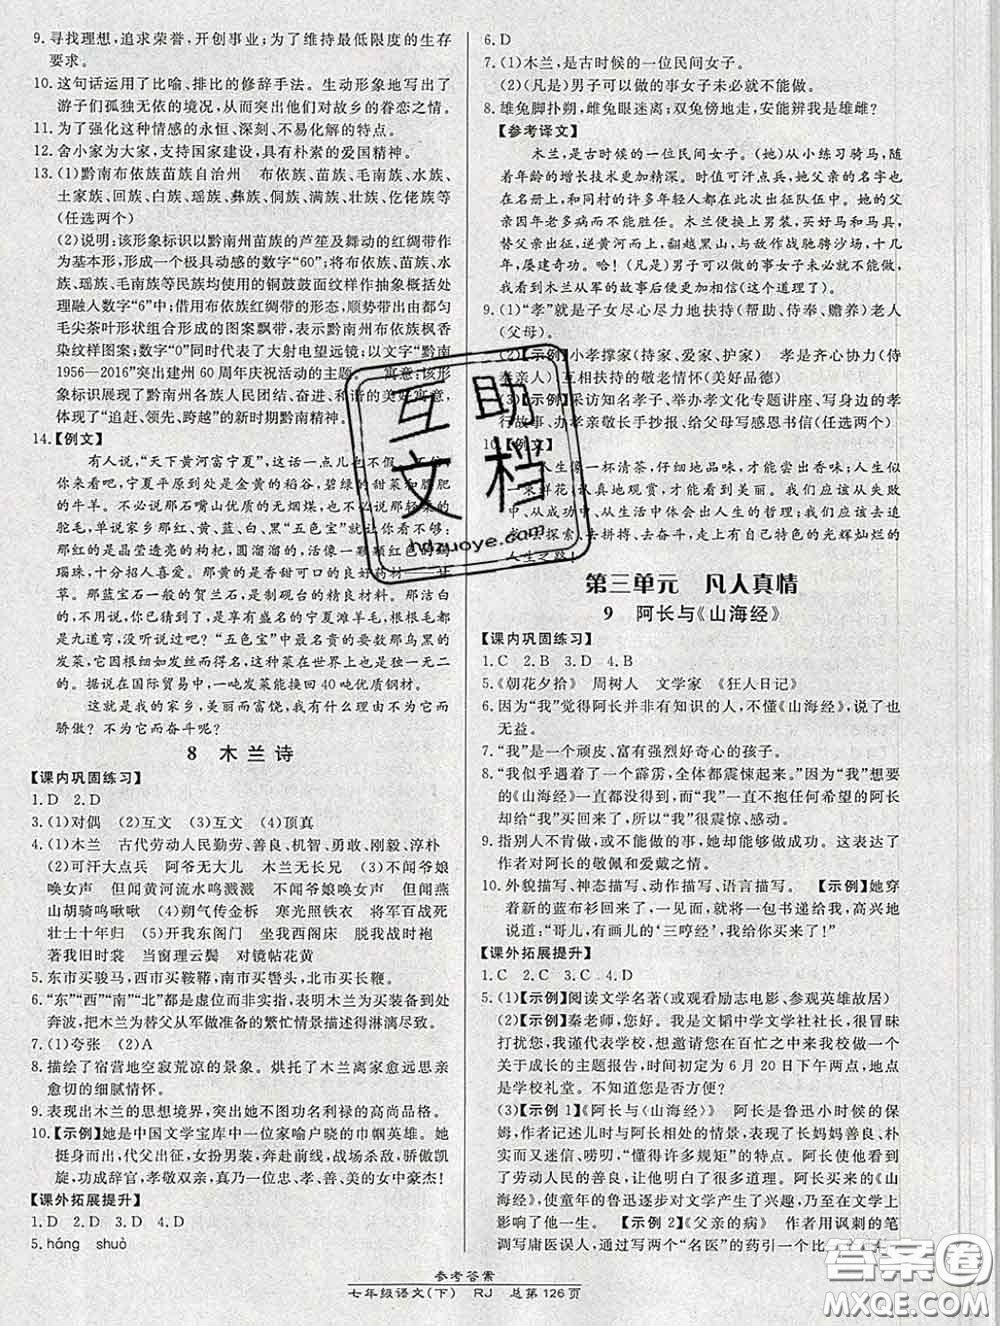 9. 寻找理想,追求荣誉,开创事业;为了维持最低限度的生存
要求。
10. 这句话运用了比喻、排比的修辞手法。生动形象地写出了
游子们孤独无依的境况,从而衬托出他们对故乡的眷恋之情。
11. 为了强化这种情感的永恒、深刻、不易化解的特点。
12. 舍小家为大家,支持国家建设,具有朴素的爱国精神。
13. (1)黔南布依族苗族自治州 布依族、苗族、毛南族、水族、
土家族、回族、白族、瑶族、彝族、侗族、满族、壮族、仡佬族等
(任选两个)
(2)说明:该形象标识以黔南州苗族的芦笙及舞动的红绸带
作为基本形,形成一个极具动感的数字“60”;将布依族、苗族、水
族、瑶族、毛南族等民族均使用的铜鼓鼓面纹样作抽象概括处
理融入数字“6”中;借用布依族红绸带的形态,顺势带出由都匀
毛尖茶叶形状组合形成的图案飘带,表示黔南州布依族枫香
染纹样图案;数字“0”同时代表了大射电望远镜;以文字“黔南
1956—2016”突出建州 60 周年庆祝活动的主题。 寓意:该形
象标识展现了黔南州各族人民团结、奋进、和谐的美好寓意,
体现了“追赶、领先、跨越”的新时期黔南精神。
14. 【例文】
有人说,“天下黄河富宁夏”,这话一点儿也不假。不仅
如此,宁夏还到处是金黄的稻谷,碧绿的菜畦,成群
的牛羊。不必说那石嘴山优质的无烟煤,也不必说那轻柔的
驼毛,单说家乡那红、黄、蓝、白、黑“五色宝”就让你看不够。
那红的是晶莹透亮的枸杞,圆溜溜的,仿佛一颗颗红色的
瑙珠,十分招人喜爱。那黄的是香甜可口的良好药材——甘
草。那蓝蓝宝石一般的贺兰石,是制砚台的良好材料。那洁白
的,不用说,当然是制作高级裘皮大衣的宁夏滩羊毛,根根似
玉,朵朵如云。最稀奇古怪的要数那乌黑的
发菜,它细如发丝,黑里透亮,在“五色宝”中它虽排行最
后,却最惹人喜爱,因为这种菜在世界上也是独一无二
的。据说在国际贸易中,一吨发菜能换回 40 吨优质钢材。
这就是我的家乡,美丽而富饶,我有什么理由不为它而
骄傲?不为它而奋斗呢?
8 木兰诗
【课内巩固练习】
1. D 2. D
3. (1)对偶 (2)互文 (3)互文 (4)顶真
4. (1)木兰 古代劳动人民勤劳、善良、机智、勇敢、刚毅、淳朴
(2)可汗大点兵 阿爷无大儿 木兰无长兄 (3)不闻爷娘
唤女声 但闻黄河流水鸣溅溅 不闻爷娘唤女声 但闻燕
山胡骑鸣啾啾 (4)朔气传金柝 寒光照铁衣 将军百战死
壮士十年归 (5)开我东阁门 坐我西阁床 脱我战时袍
著我旧时裳 当窗理云鬓 对镜帖花黄
5. 东市买骏马,西市买鞍鞯,南市买辔头,北市买长鞭。
6. “东”“西”“南”“北”都是虚位而非实指,表明木兰买装备到处
奔波,把木兰为替父从军做准备的繁忙情景描述得淋漓尽致。
7. (1)夸张 (2)A
8. 描绘了宿营地空寂荒凉的景象。烘托了木兰离家愈远思亲
愈切的细腻情怀。
9. 表现出木兰的思想境界,突出她不图功名利禄的高尚品格。
10. 【示例】她是中国文学宝库中一位家喻户晓的巾帼英雄。她
挺身而出,代父出征,女扮男装,奔赴前线,战场杀敌,骁勇凯
旋,功成辞官,孝敬双亲,真乃忠、孝、善、美的女中豪杰!
【课外拓展提升】
1. D 2. D 3. D 4. D
5. háng shuò
6. D
7. (1)木兰,是古时候的一位民间女子。
(2)(凡是)男子可以做的事女子未必就不能做。
8. 雄兔脚扑朔,雌兔眼迷离;双兔傍地走,安能辨我是雄雌?
【参考译文】
木兰,是古时候的一位民间女子。(她)从小练习骑马,随
着年龄的增长技术更加精深。时值可汗点兵,她父亲的名字也
在名册上,和同村的许多年轻人都在此次出征队伍中。她的父
亲因年老多病而不能胜任。木兰便换上男装,买好马和马具,
替父亲出征。逆黄河而上,翻越黑山,与敌作战驰骋沙场,十几
年,屡建奇功。哈!(凡是)男子可以做的事女子未必就不能做,我
看到木兰从军的故事后便更信(这个道理了)。
9. (1)“孝”就是子女尽心尽力地扶持(帮助、侍奉、赡养)老人
(父母)。
(2)【示例】小孝撑家(持家、爱家、护家) 孝是齐心协力(侍
奉亲人)互相扶持的敬老情怀(美好品德)
(3)【示例】采访知名孝子、举办孝文化专题讲座、写身边的孝
行故事、办孝亲敬长手抄报、给父母写感恩书信(任选两个)
10. 【例文】
人生像一杯清茶,仔细地品味,才能尝出香味;人生似
一束鲜花,认真地观赏,才能看到美丽。我们应该从失败
中、从成功中、从生活中去体会出人生的哲理;我们应当从
探索、去拼搏、去奋斗,走上有自己特色的光辉灿烂的
人生之路!
第三单元 凡人真情
9 阿长与《山海经》
【课内巩固练习】
1. C 2. B 3. D 4. B
5. 《朝花夕拾》 周树人 文学家 《狂人日记》
6. 因为“我”觉得阿长并非有知识的人,不懂《山海经》,说了也
无益。
7. “我”是一个顽皮、富有强烈好奇心的孩子。
8. “我似乎遇着了一个霹雳,全体都震悚起来。”因为“我”想要
的《山海经》一直都没得到,而“我”一直不抱任何希望的阿长
却给“我”买回来了,所以“我”很震惊、感动。
9. 指别人不肯做,或不能做的事,她却能够做成功。这表达了
作者对阿长的敬佩和爱戴之情。
10. 外貌描写、神态描写、动作描写、语言描写。 【示例】她穿
着新的蓝布衫回来了,一见面,就将一包书递给我,高兴地
说道:“哥儿,有画儿的‘三哼经’,我给你买来了!”
【课外拓展提升】
1. C 2. C 3. C 4. D
5. (1)【示例】阅读文学名著(或观看励志电影、参观英雄故居)
(2)【示例】秦老师,您好。我是文韬中学文学社社长,很冒昧
打扰您,我谨代表学校,邀请您在百忙之中来我校做一个关
于成长的主题报告,时间初定为 6 月 20 日下午两点,地点
是学校礼堂。不知道您是否方便?
(3)【示例 1】《阿长与〈山海经〉》 阿长是鲁迅小时候的保
姆,作者记述儿时与阿长相处的情景,表现了长妈妈善良、朴
实而又迷信、唠叨,“懂得许多规矩”的特点。作者从她身上看到
了劳动人民的善良,她让他明白了很多道理。阿长买的《山海
经》,使童年的鲁迅逐步对文学产生了兴趣,乃至在文学上
影响了他一生。 【示例 2】《父亲的病》 作者用讽刺的笔
调写庸医误人,通过写两个“名医”的药引一个比一个
参考答案
七年级语文(下) RJ 总第 126 页
互助文档
hdzuoye.com
答案圈
MXQE.COM